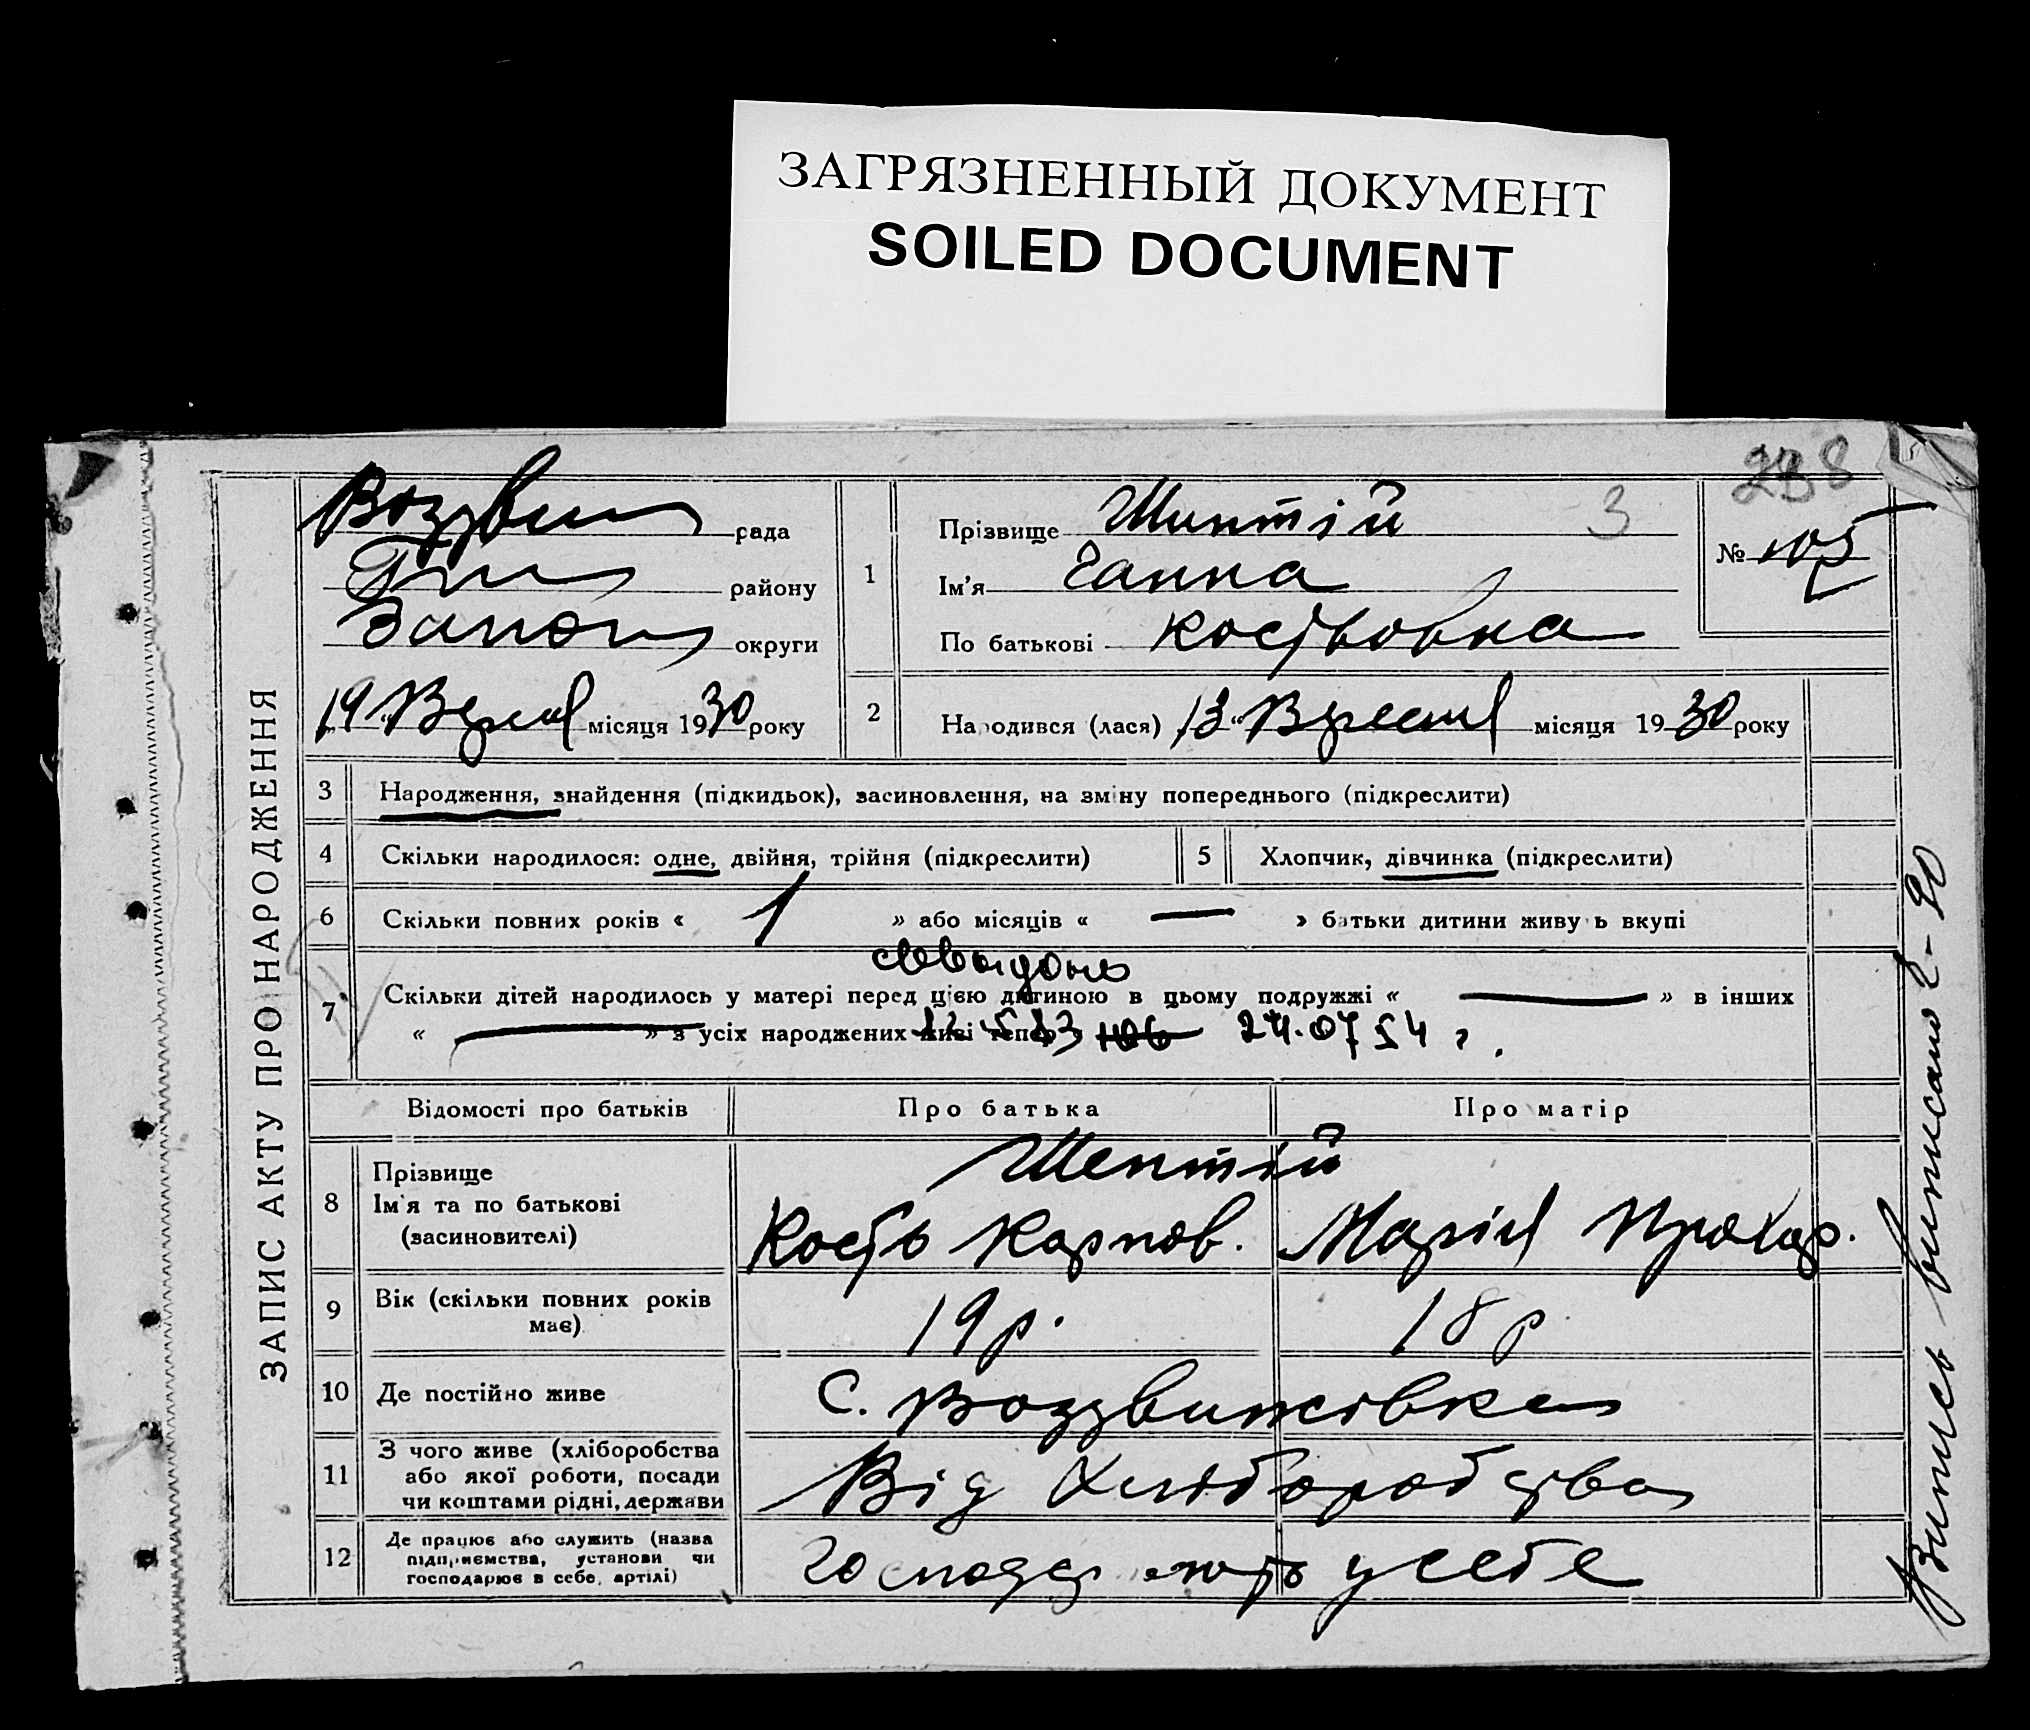 ЗАГРЯЗНЕННЫЙ ДОКУМЕНТ
SOILED DOCUMENT
238
ЗАПИС АКТУ ПРО НАРОДЖЕННЯ
рада
району
Запоріз округи
1
Прізвище Шептій 3
Ім'я Ганна
По батькові Костьовна
№ 105
19 " Вересня місяця 1930 року
2 Народився (лася) 13 " Вересня місяця 1930 року
3 Народження, знайдення (підкидьок), засиновлення, на зміну попереднього (підкреслити)
4 Скільки народилося: одне, двійня, трійня (підкреслити)
5 Хлопчик, дівчинка (підкреслити)
6 Скільки повних років « 1 » або місяців « — » батьки дитини живуть вкупі
7 Скільки дітей народилось у матері перед цією дитиною в цьому подружжі « — » в інших
« — » з усіх народжених живі тепер 24.07 54 г.
Відомості про батьків Про батька Про матір
8 Прізвище
Ім'я та по батькові
(засиновителі)
Шептій
Кость Карпов. Марія Прохар.
9 Вік (скільки повних років
має)
19 р. 18 р
10 Де постійно живе С. Воздвижівка
11 З чого живе (хліборобства
або якої роботи, посади
чи коштами рідні, держави
Від Хліборобства
12 Де працює або служить (назва
підприємства, установи чи
господарює в себе, артілі)
у себе
Випись виписано 2-90